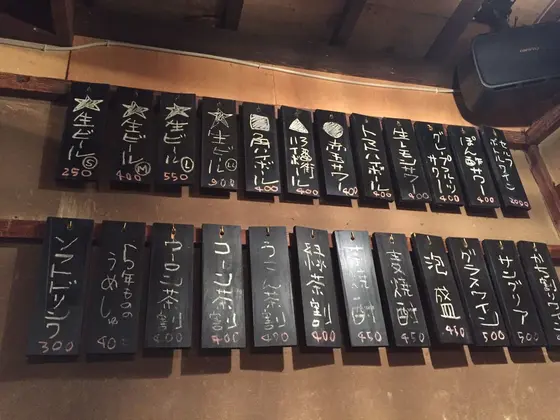 ☆生ビールⓈ 250
☆生ビールⓂ 400
☆生ビールⓁ 550
☆生ビール 900
角ハイボール 400
ボール 400
お玉サワー 400
トマトハイボール 400
生レモンサワー 400
グレープフルーツサワー 400
ぽん酢サワー 400
ボトルワイン 2000
ソフトドリンク 300
5年もののうめしゅ 400
ウーロン茶割 400
コーン茶割 400
茶割 400
緑茶割 400
焼酎 450
麦焼酎 450
泡盛 450
グラスワイン 500
サングリア 500